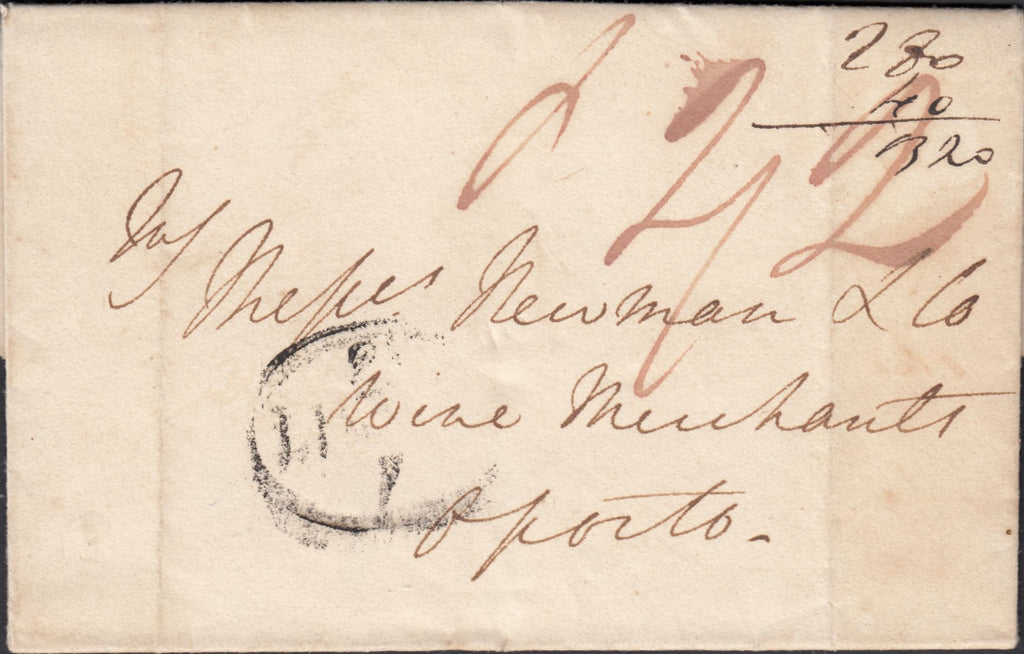 280
40
320
Messrs Newman & Co
Wine Merchants
Oporto.